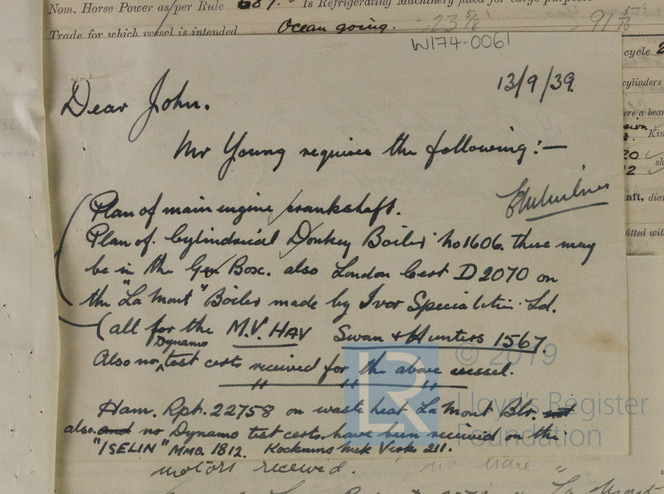 Nom. Horse Power as per Rule 687. Is Refrigerating Machinery fitted for cargo purposes
Trade for which vessel is intended Ocean going. 23 5/8 91 5/16
W174-0061
cycle 2
cylinders
13/9/39.
Dear John.
Mr Young requires the following:-
Plan of main engine crankshaft.
Plan of Cylindrical Donkey Boiler No 1606. these may
be in the Gen Box. also London Cert D2070 on
the "La Mont" Boiler made by Ivor Specialities Ld.
(all for the M.V. HAV Swan & Hunters 1567.
Dynamo
Also no test certs received for the above vessel.
" " "
Ham. Rpt. 22758 on waste heat La Mont Blr. not
also and no Dynamo test certs. have been received on the
"ISELIN" MMa 1812. Kockums Mek Verks 211.
motors received.
© 2019
Lloyd's Register
Foundation